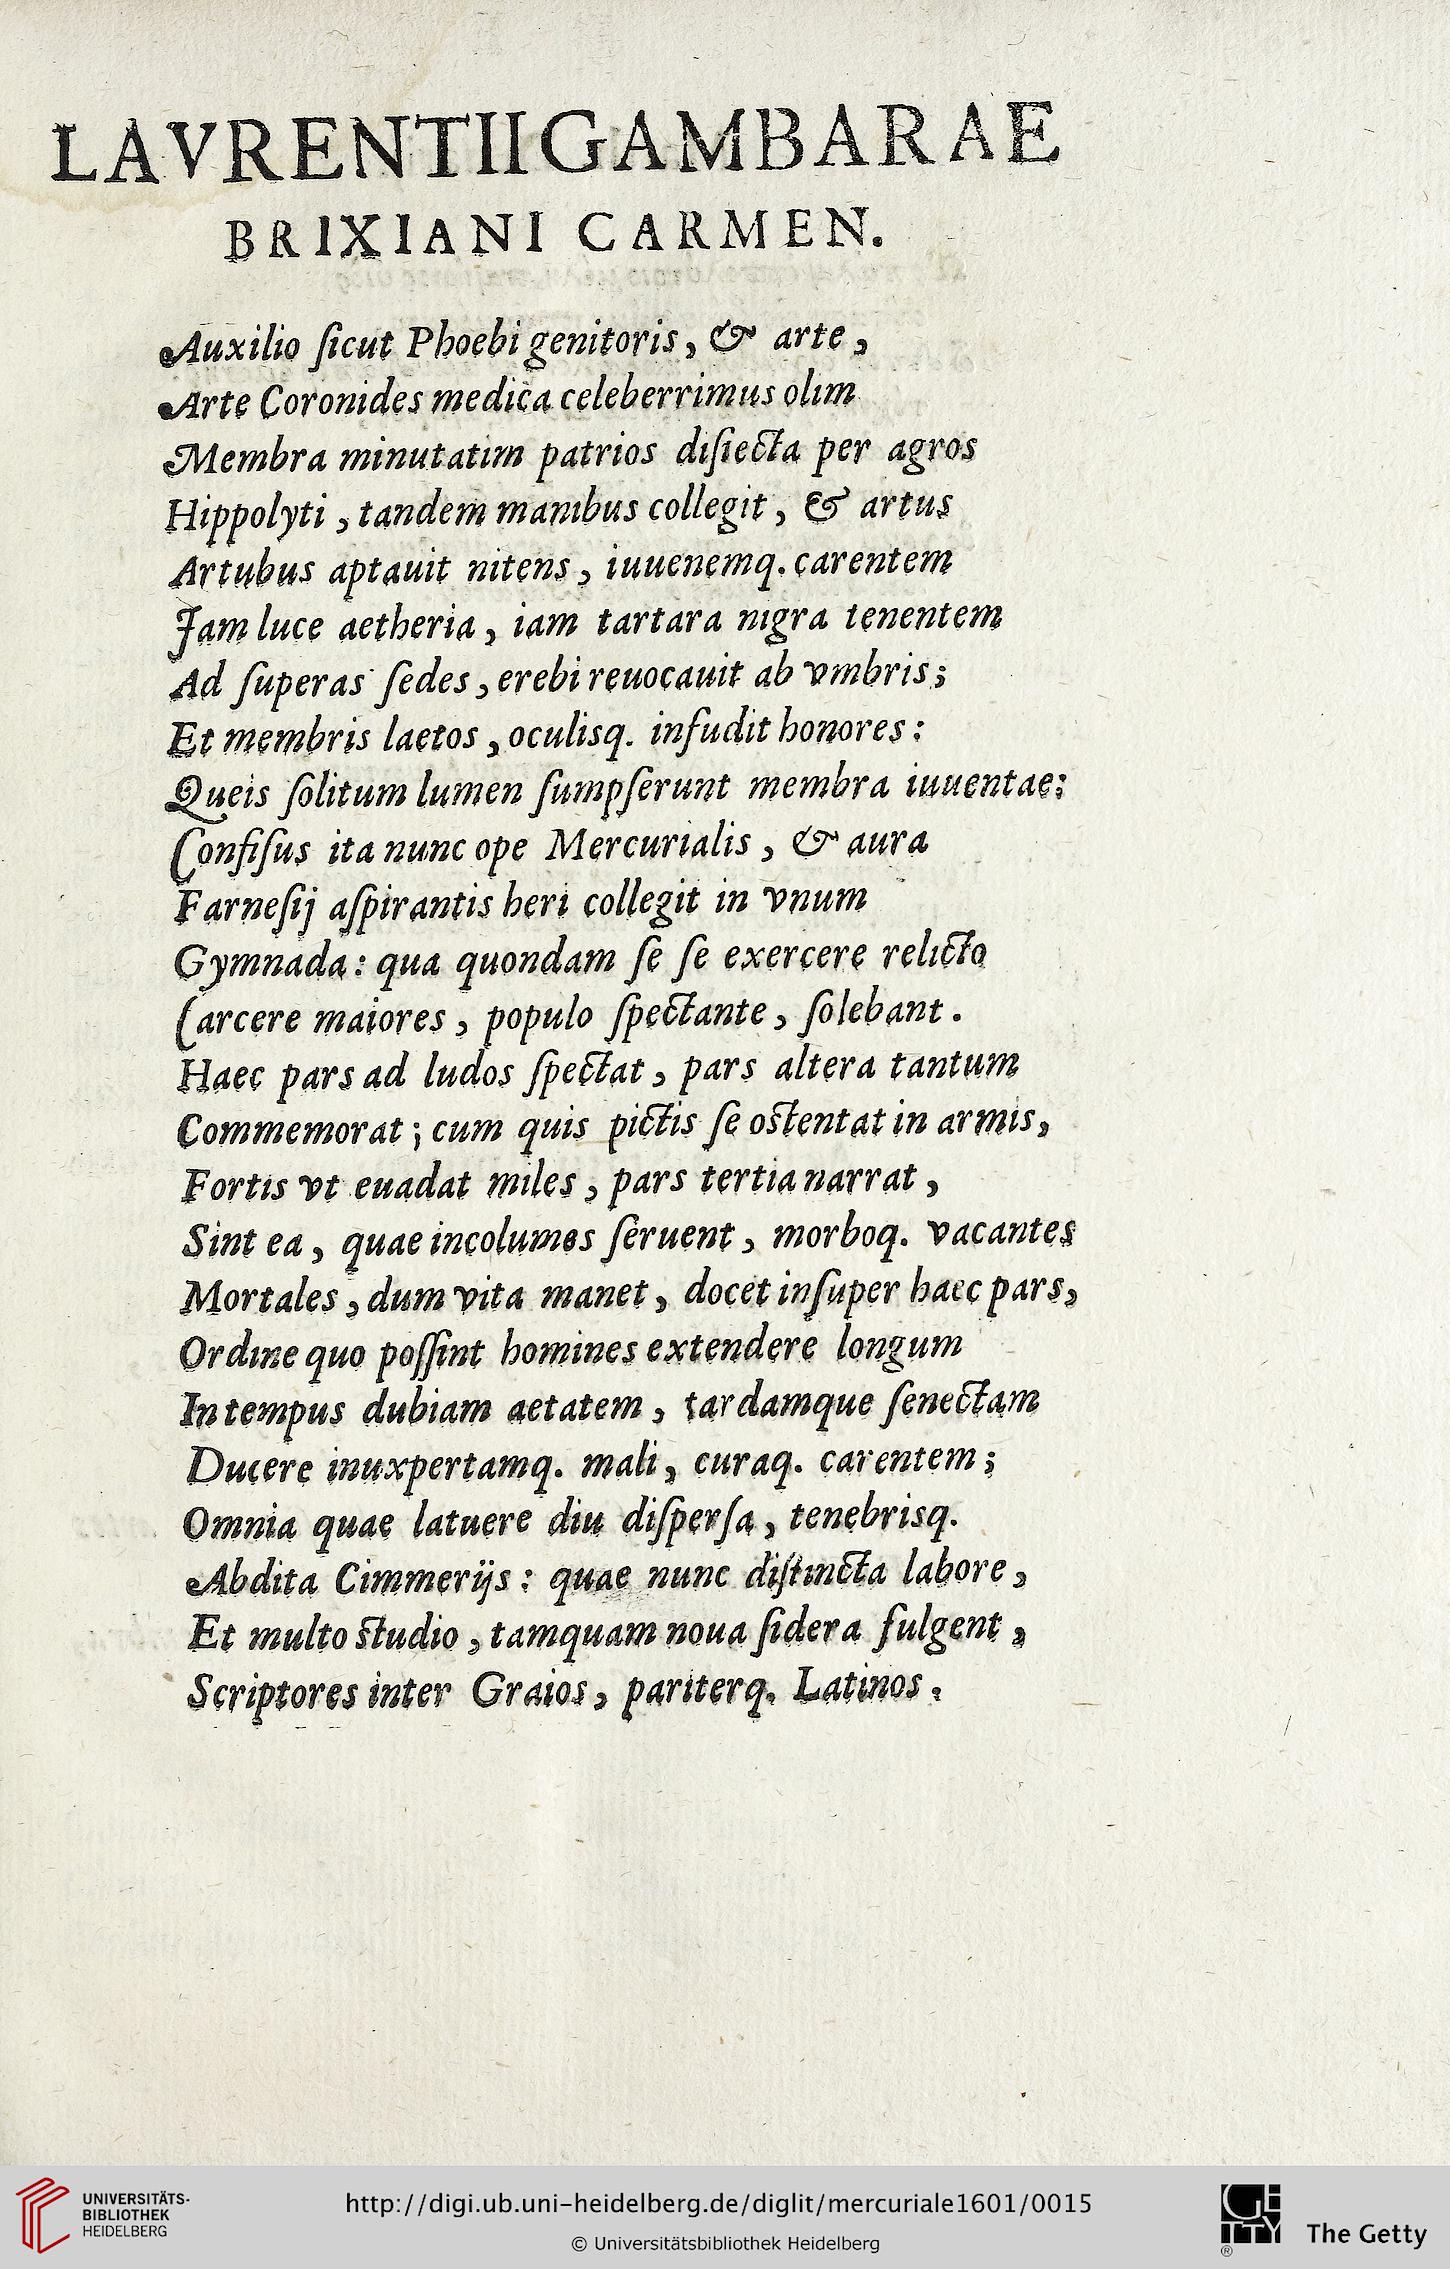 LAVRENTII GAMBARAE
BRIXIANI CARMEN.
Auxilio ſicut Phoebi genitoris, & arte,
Arte Coronides medica celeberrimus olim
Membra minutatim patrios diſiecta per agros
Hippolyti, tandem manibus collegit, & artus
Artubus aptauit nitens, iuuenemq. carentem
Jam luce aetheria, iam tartara nigra tenentem
Ad ſuperas ſedes, erebi reuocauit ab vmbris;
Et membris laetos, oculisq. infudit honores:
Queis ſolitum lumen ſumpſerunt membra iuuentae:
Confiſus ita nunc ope Mercurialis, & aura
Farneſij aſpirantis heri collegit in vnum
Gymnada: qua quondam ſe ſe exercere relicto
Carcere maiores, populo ſpectante, ſolebant.
Haec pars ad ludos ſpectat, pars altera tantum
Commemorat; cum quis pictis ſe ostentat in armis,
Fortis vt euadat miles, pars tertia narrat,
Sint ea, quae incolumes ſeruent, morboq. vacantes
Mortales, dum vita manet, docet inſuper haec pars,
Ordine quo poſſint homines extendere longum
In tempus dubiam aetatem, tardamque ſenectam
Ducere inuxpertamq. mali, curaq. carentem;
Omnia quae latuere diu diſperſa, tenebrisq.
Abdita Cimmerijs: quae nunc diſtincta labore,
Et multo studio, tamquam noua ſidera fulgent,
Scriptores inter Graios, pariterq. Latinos.
UNIVERSITÄTS-
BIBLIOTHEK
HEIDELBERG
http://digi.ub.uni-heidelberg.de/diglit/mercuriale1601/0015
© Universitätsbibliothek Heidelberg
GETTY
®
The Getty